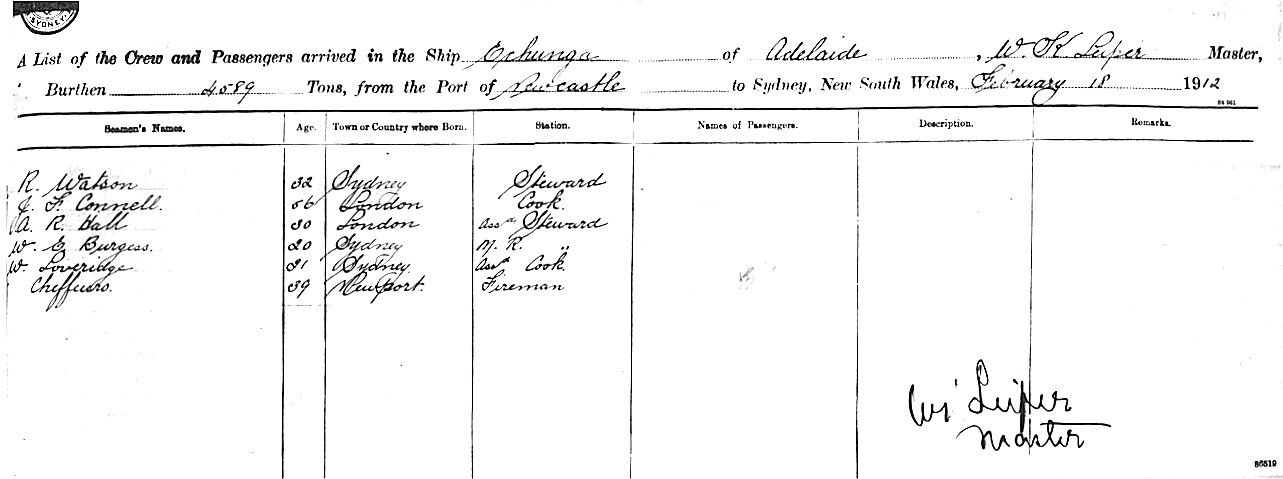 SYDNEY
A List of the Crew and Passengers arrived in the Ship Echunga of Adelaide, W. K Leiper Master,
Burthen 4589 Tons, from the Port of Newcastle to Sydney, New South Wales, February 18 1912
84 961
Seamen's Names. Age. Town or Country where Born. Station. Names of Passengers. Description. Remarks.
R. Watson 32 Sydney Steward
J. F. Connell. 56 London Cook.
A. R. Hall 30 London Asst Steward
W. G Burgess. 20 Sydney M. R. "
W. Loveridge 31 Sydney. Asst Cook.
39 Newport. Fireman
Leiper
Master
86519